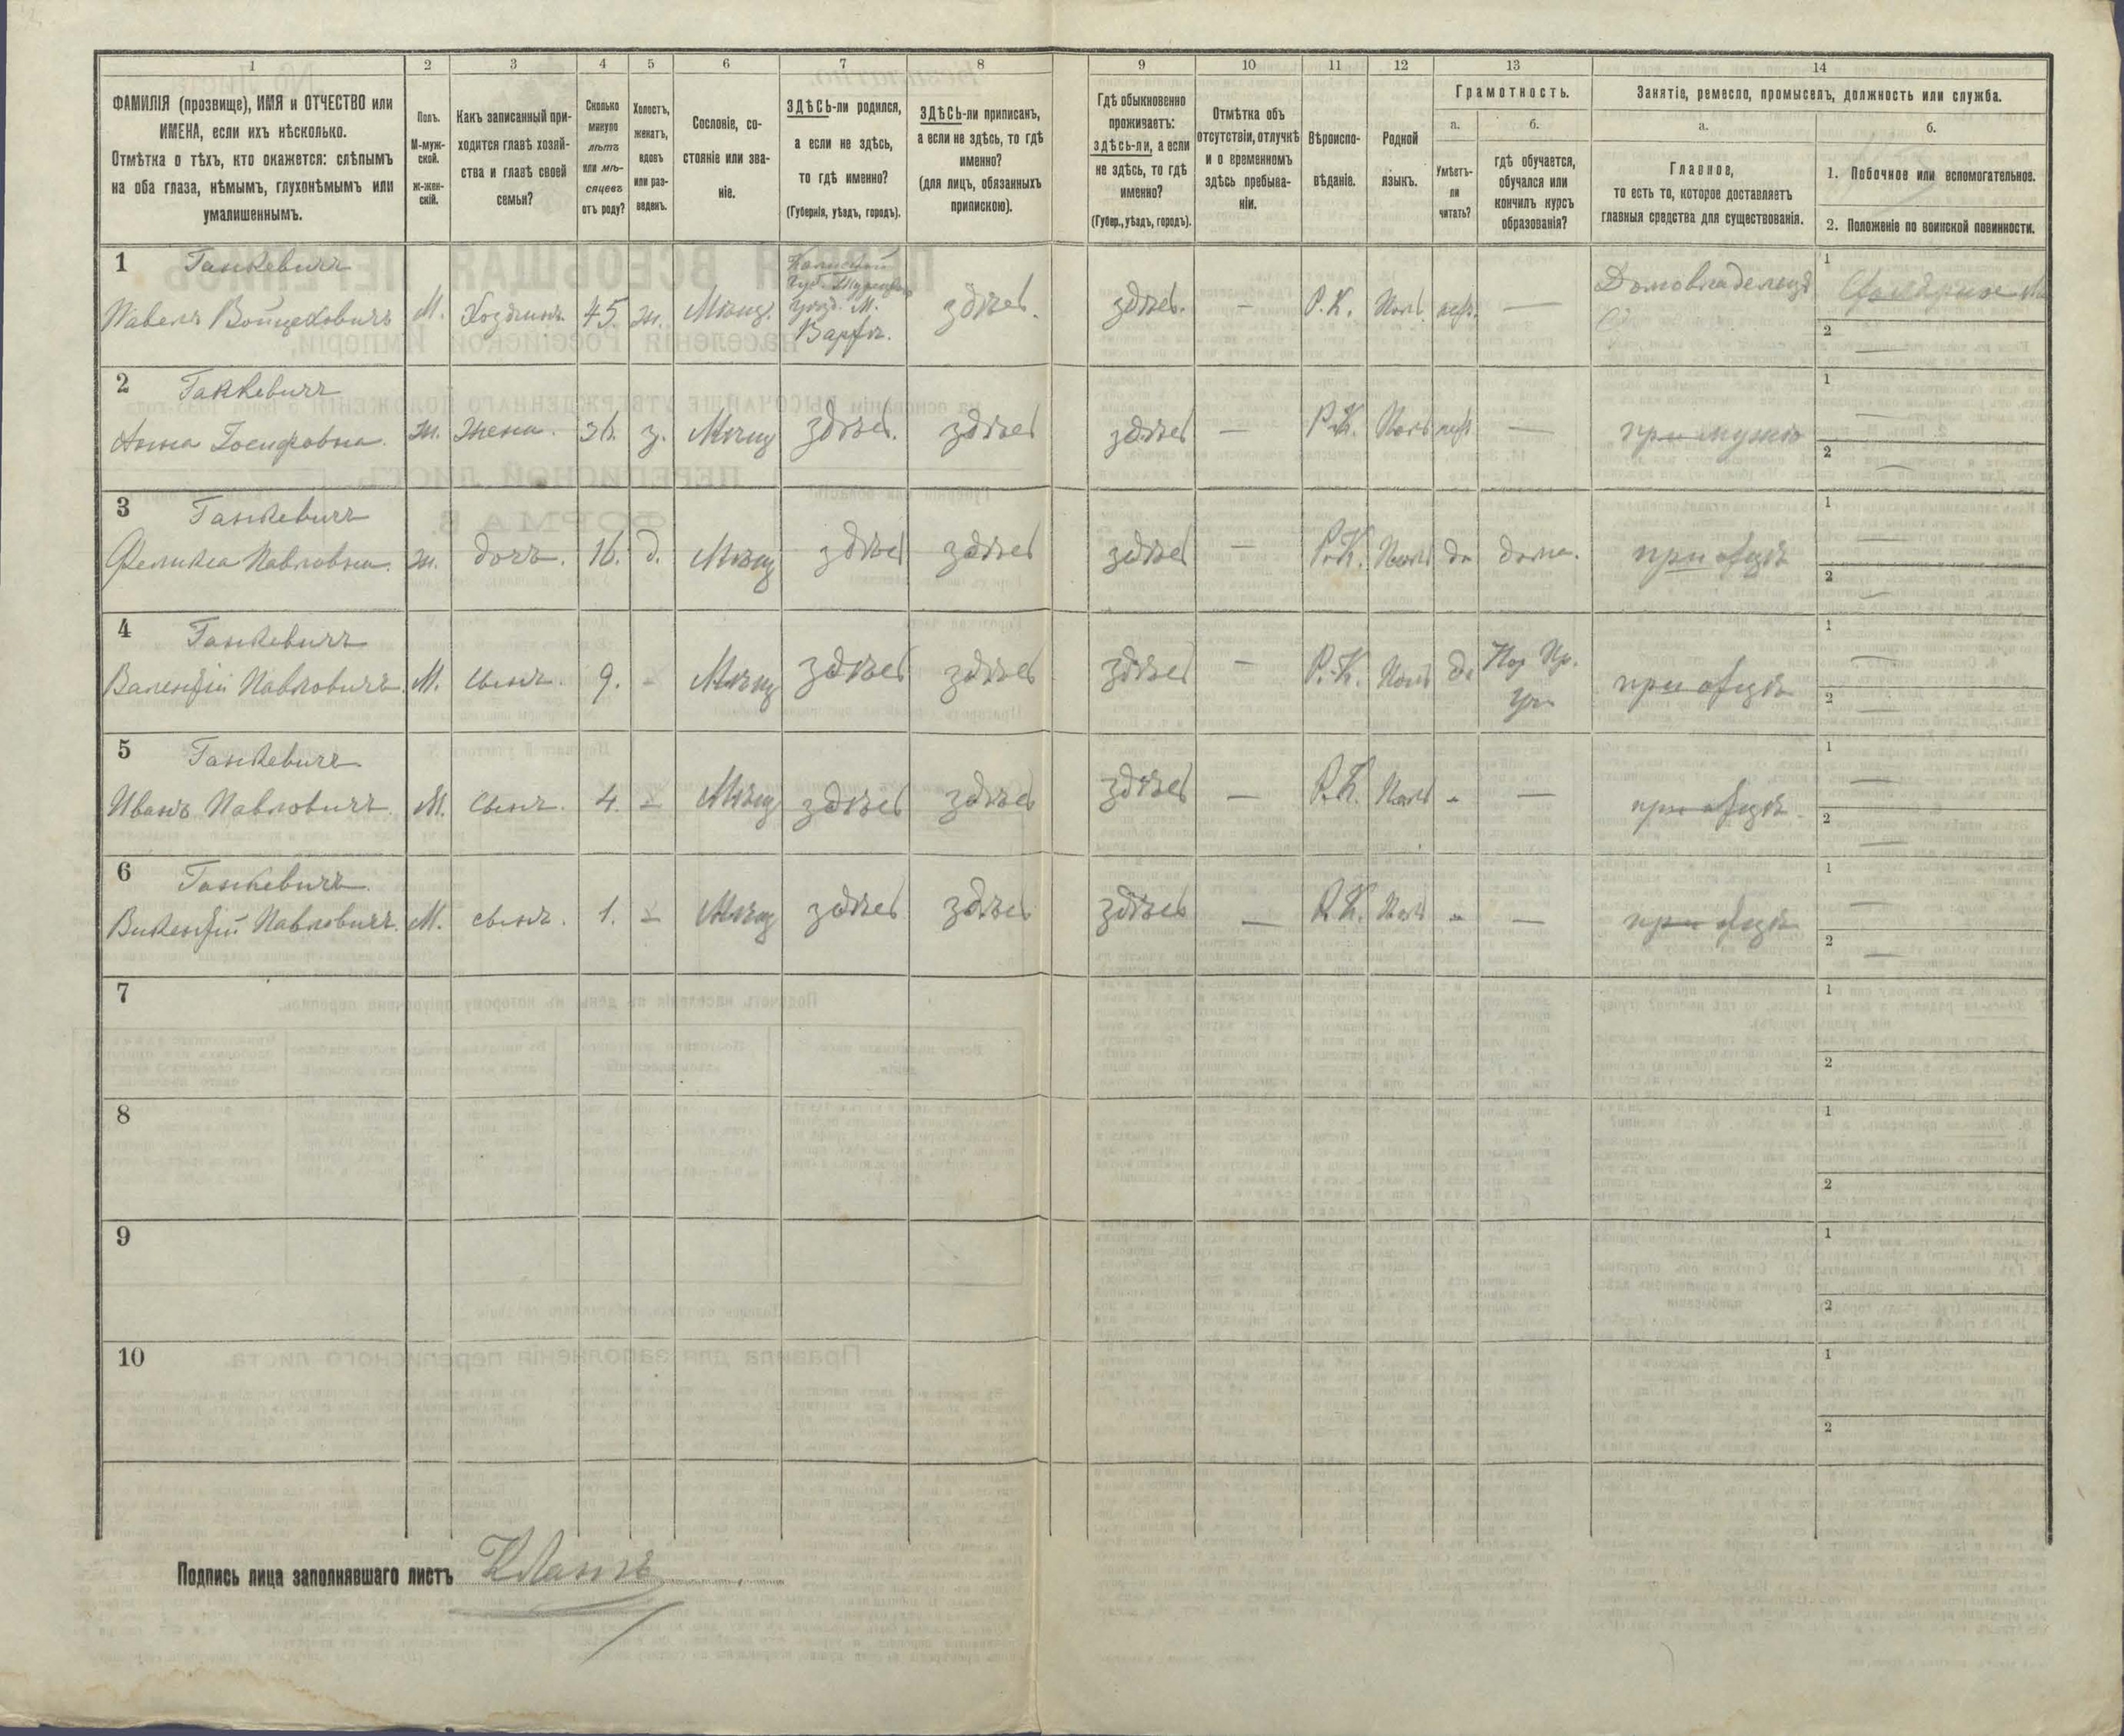 1 2 3 4 5 6 7 8 9 10 11 12 13 14
ФАМИЛІЯ (прозвище), ИМЯ и ОТЧЕСТВО или
ИМЕНА, если ихъ нѣсколько.
Отмѣтка о тѣхъ, кто окажется: слѣпымъ
на оба глаза, нѣмымъ, глухонѣмымъ или
умалишеннымъ.
Полъ.
М-муж-
ской.
Ж-жен-
скій.
Какъ записанный при-
ходится главѣ хозяй-
ства и главѣ своей
семьи?
Сколько
минуло
лѣтъ
или мѣ-
сяцевъ
отъ роду?
Холостъ,
женатъ,
вдовъ
или раз-
веденъ.
Сословіе, со-
стояніе или зва-
ніе.
ЗДѢСЬ-ли родился,
а если не здѣсь,
то гдѣ именно?
(Губернія, уѣздъ, городъ).
ЗДѢСЬ-ли приписанъ,
а если не здѣсь, то гдѣ
именно?
(для лицъ, обязанныхъ
припискою).
Гдѣ обыкновенно
проживаетъ:
здѣсь-ли, а если
не здѣсь, то гдѣ
именно?
(Губер., уѣздъ, городъ).
Отмѣтка объ
отсутствіи, отлучкѣ
и о временномъ
здѣсь пребыва-
ніи.
Вѣроиспо-
вѣданіе.
Родной
языкъ.
Грамотность.
а.
Умѣетъ-
ли
читать?
б.
гдѣ обучается,
обучался или
кончилъ курсъ
образованія?
Занятіе, ремесло, промыселъ, должность или служба.
а.
Главное,
то есть то, которое доставляетъ
главныя средства для существованія.
б.
1. Побочное или вспомогательное.
2. Положеніе по воинской повинности.
1 Ганкевичъ
Павелъ Войцеховичъ М. Хозяинъ 45. ж. Мѣщ.
Губ.
Уѣзд. М.
Варта.
здѣсь. здѣсь. — Р.К. Поль. — Домовладелецъ
1
2 —
2 Ганкевичъ
Анна Іосифовна. ж. жена. 36. з. Мѣщ здѣсь. здѣсь здѣсь — Р.К. Поль — при мужѣ
1 —
2 —
3 Ганкевичъ
Феликса Павловна. ж. дочь. 16. д. Мѣщ здѣсь здѣсь здѣсь — Р.К. Поль да дома. при отцѣ
1 —
2 —
4 Ганкевичъ
Валентій Павловичъ. М. сынъ. 9. - Мѣщ здѣсь здѣсь здѣсь — Р.К. Поль да при отцѣ
1 —
2 —
5 Ганкевичъ
Иванъ Павловичъ. М. сынъ. 4. - Мѣщ здѣсь здѣсь здѣсь — Р.К. Поль - — при отцѣ
1 —
2 —
6 Ганкевичъ
Викентій Павловичъ. М. сынъ. 1. - Мѣщ здѣсь здѣсь здѣсь — Р.К. Поль - — при отцѣ
1 —
2 —
7
1
2
8
1
2
9
1
2
10
1
2
Подпись лица заполнявшаго листъ